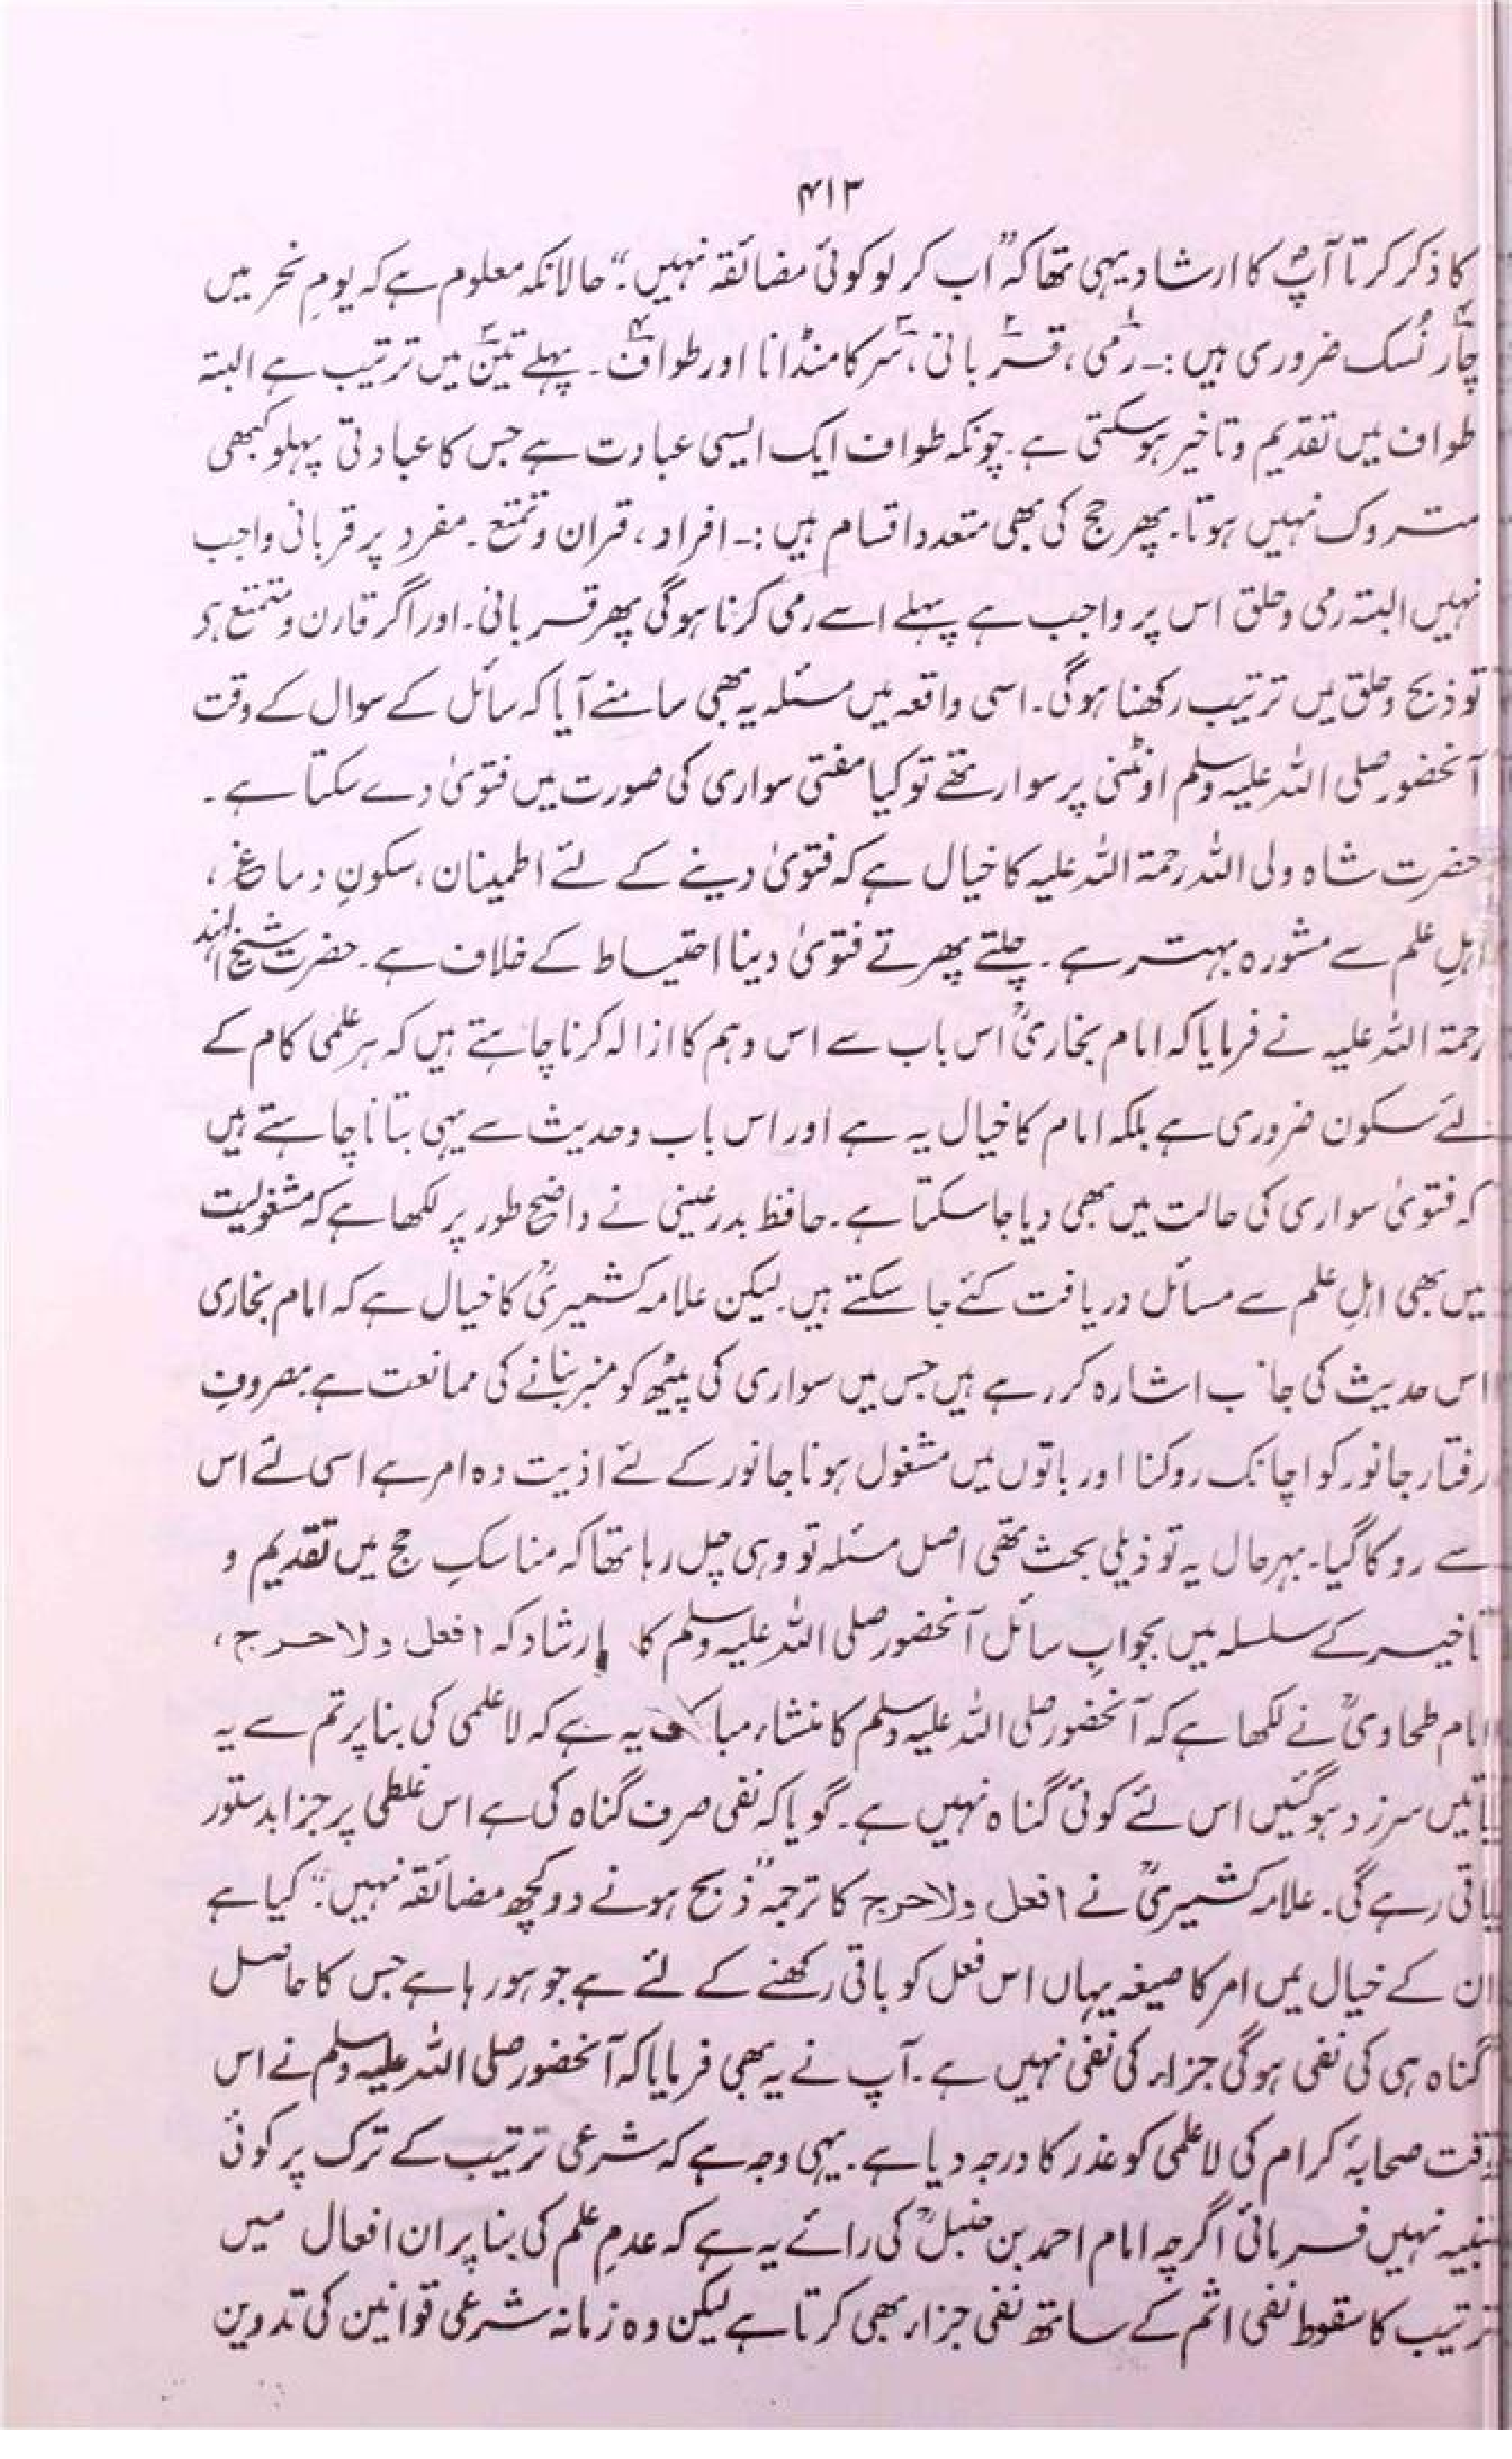 ۴۱۳
کا ذکر کرتا آپؐ کا ارشاد یہی تھا کہ ”اب کر لو کوئی مضائقہ نہیں۔“ حالانکہ معلوم ہے کہ یومِ نحر میں
چار نُسک ضروری ہیں :۔ رمی، قربانی، سر کا منڈانا اور طواف۔ پہلے تین میں ترتیب ہے البتہ
طواف میں تقدیم و تاخیر ہوسکتی ہے۔ چونکہ طواف ایک ایسی عبادت ہے جس کا عبادتی پہلو کبھی
متروک نہیں ہوتا۔ پھر حج کی بھی متعدد اقسام ہیں :۔ افراد، قران و تمتع۔ مفرد پر قربانی واجب
نہیں البتہ رمی و حلق اس پر واجب ہے پہلے اسے رمی کرنا ہوگی پھر قربانی۔ اور اگر قارن و متمتع ہو
تو ذبح و حلق میں ترتیب رکھنا ہوگی۔ اسی واقعہ میں مسئلہ یہ بھی سامنے آیا کہ سائل کے سوال کے وقت
آنحضور صلی اللہ علیہ وسلم اونٹنی پر سوار تھے تو کیا مفتی سواری کی صورت میں فتویٰ دے سکتا ہے۔
حضرت شاہ ولی اللہ رحمۃ اللہ علیہ کا خیال ہے کہ فتویٰ دینے کے لئے اطمینان، سکونِ دماغ،
اہلِ علم سے مشورہ بہتر ہے۔ چلتے پھرتے فتویٰ دینا احتیاط کے خلاف ہے۔ حضرت شیخ الہند
رحمۃ اللہ علیہ نے فرمایا کہ امام بخاریؒ اس باب سے اس وہم کا ازالہ کرنا چاہتے ہیں کہ ہر علمی کام کے
لئے سکون ضروری ہے بلکہ امام کا خیال یہ ہے اور اس باب و حدیث سے یہی بتانا چاہتے ہیں
کہ فتویٰ سواری کی حالت میں بھی دیا جاسکتا ہے۔ حافظ بدر عینی نے واضح طور پر لکھا ہے کہ مشغولیت
میں بھی اہلِ علم سے مسائل دریافت کئے جا سکتے ہیں۔ لیکن علامہ کشمیریؒ کا خیال ہے کہ امام بخاری
اس حدیث کی جانب اشارہ کر رہے ہیں جس میں سواری کی پیٹھ کو منبر بنانے کی ممانعت ہے۔ مصروفِ
رفتار جانور کو اچانک روکنا اور باتوں میں مشغول ہونا جانور کے لئے اذیت دہ امر ہے اسی لئے اس
سے روکا گیا۔ بہرحال یہ تو ذیلی بحث تھی اصل مسئلہ تو وہی چل رہا تھا کہ مناسکِ حج میں تقدیم و
تاخیر کے سلسلہ میں بجوابِ سائل آنحضور صلی اللہ علیہ وسلم کا ارشاد کہ افعل ولا حرج،
امام طحاویؒ نے لکھا ہے کہ آنحضور صلی اللہ علیہ وسلم کا منشاء مبارک یہ ہے کہ لا علمی کی بنا پر تم سے یہ
باتیں سرزد ہوگئیں اس لئے کوئی گناہ نہیں ہے۔ گویا کہ نفی صرف گناہ کی ہے اس غلطی پر جزا بدستور
باقی رہے گی۔ علامہ کشمیریؒ نے افعل ولا حرج کا ترجمہ ”ذبح ہونے دو کچھ مضائقہ نہیں“۔ کیا ہے
ان کے خیال میں امر کا صیغہ یہاں اس فعل کو باقی رکھنے کے لئے ہے جو ہو رہا ہے جس کا حاصل
گناہ ہی کی نفی ہوگی جزاء کی نفی نہیں ہے۔ آپ نے یہ بھی فرمایا کہ آنحضور صلی اللہ علیہ وسلم نے اس
وقت صحابۂ کرام کی لاعلمی کو عذر کا درجہ دیا ہے۔ یہی وجہ ہے کہ شرعی ترتیب کے ترک پر کوئی
تنبیہ نہیں فرمائی اگرچہ امام احمد بن حنبلؒ کی رائے یہ ہے کہ عدمِ علم کی بنا پر ان افعال میں
ترتیب کا سقوط نفی اثم کے ساتھ نفی جزاء بھی کرتا ہے لیکن وہ زمانہ شرعی قوانین کی تدوین